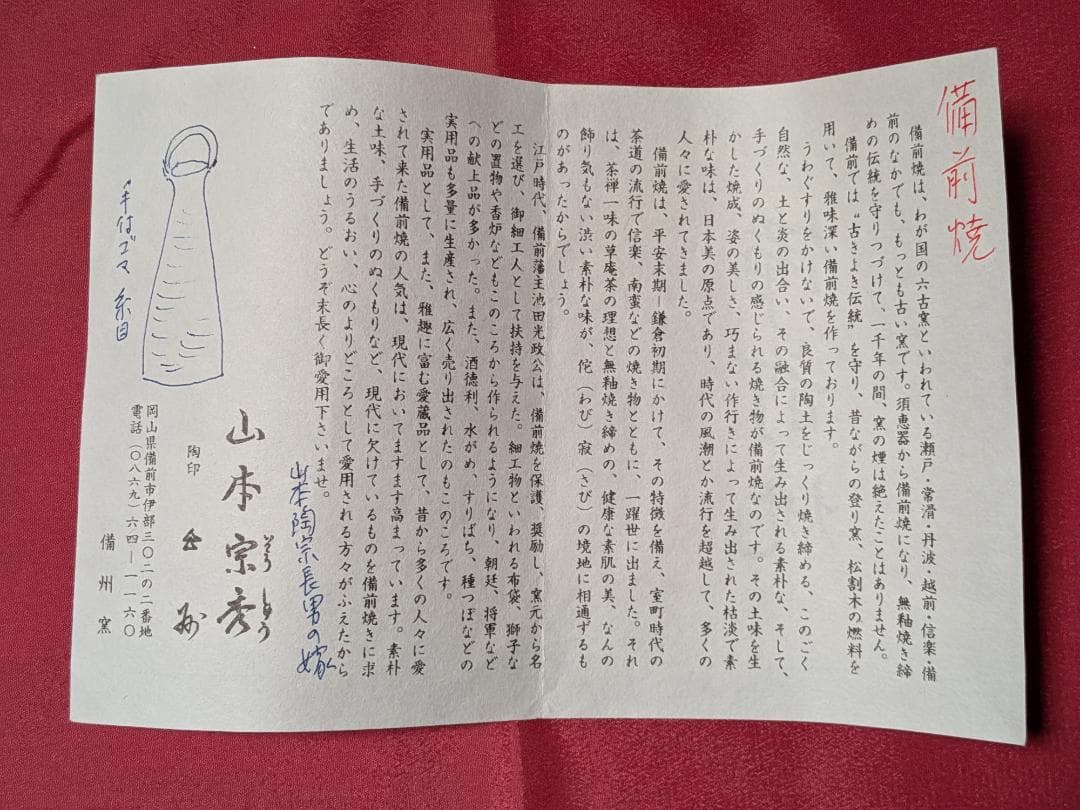 備前焼
備前焼は、わが国の六古窯といわれている瀬戸・常滑・丹波・越前・信楽・備
前のなかでも、もっとも古い窯です。須恵器から備前焼になり、無釉焼き締
めの伝統を守りつづけて、一千年の間、窯の煙は絶えたことはありません。
備前では“古きよき伝統”を守り、昔ながらの登り窯、松割木の燃料を
用いて、雅味深い備前焼を作っております。
うわぐすりをかけないで、良質の陶土をじっくり焼き締める、このごく
自然な、土と炎の出合い、その融合によって生み出される素朴な、そして、
手づくりのぬくもりの感じられる焼き物が備前焼なのです。その土味を生
かした焼成、姿の美しさ、巧まない作行きによって生み出された枯淡で素
朴な味は、日本美の原点であり、時代の風潮とか流行を超越して、多くの
人々に愛されてきました。
備前焼は、平安末期—鎌倉初期にかけて、その特徴を備え、室町時代の
茶道の流行で信楽、南蛮などの焼き物とともに、一躍世に出ました。それ
は、茶禅一味の草庵茶の理想と無釉焼き締めの、健康な素肌の美、なんの
飾り気もない渋い素朴な味が、侘（わび）寂（さび）の境地に相通ずるも
のがあったからでしょう。
江戸時代、備前藩主池田光政公は、備前焼を保護、奨励し、窯元から名
工を選び、御細工人として扶持を与えた。細工物といわれる布袋、獅子な
どの置物や香炉などもこのころから作られるようになり、朝廷、将軍など
への献上品が多かった。また、酒徳利、水がめ、すりばち、種つぼなどの
実用品も多量に生産され、広く売り出されたのもこのころです。
実用品として、また、雅趣に富む愛蔵品として、昔から多くの人々に愛
されて来た備前焼の人気は、現代においてますます高まっています。素朴
な土味、手づくりのぬくもりなど、現代に欠けているものを備前焼きに求
め、生活のうるおい、心のよりどころとして愛用される方々がふえたから
でありましょう。どうぞ末長く御愛用下さいませ。
山本陶宗長男の嫁
山本宗秀
そう しゅう
陶印
岡山県備前市伊部三〇二の二番地
電話（〇八六九）六四—一一六〇
備州窯
手付ゴマ 糸目